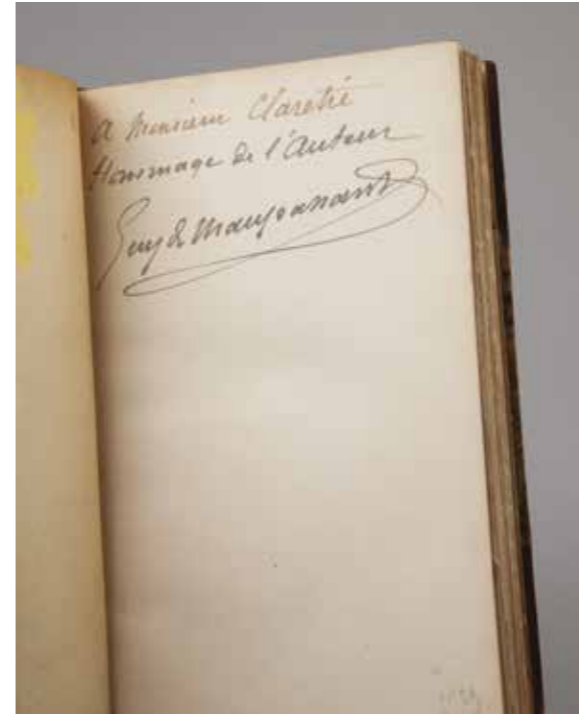 A Monsieur Claretie
Hommage de l'Auteur
Guy de Maupassant